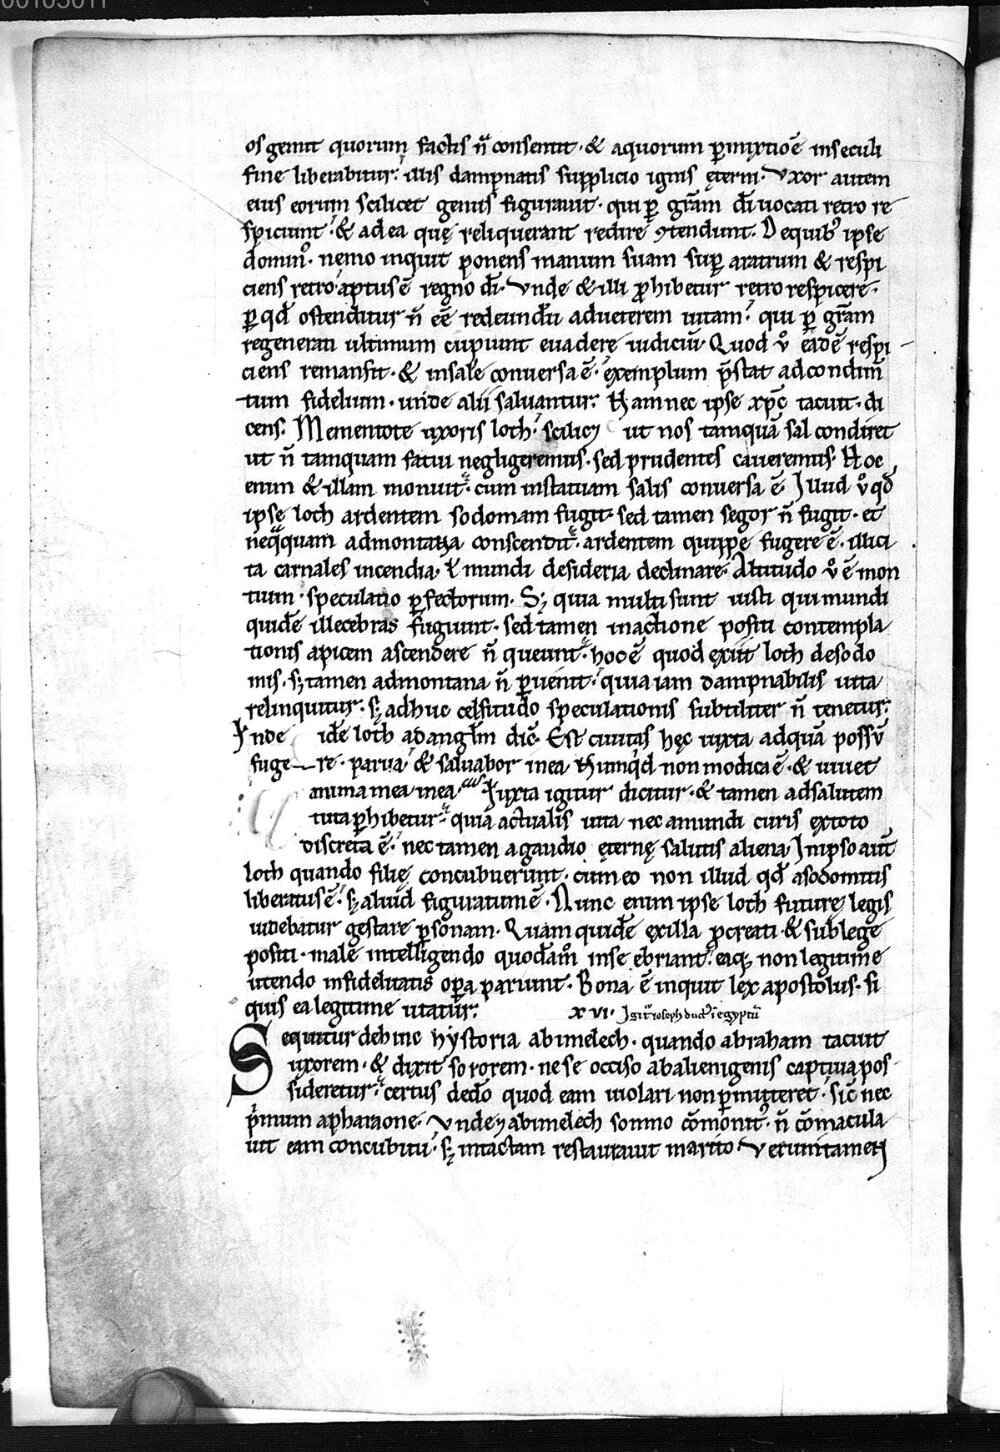 os gemit quorum factis n̄ consentit · & a quorum p̄mixtiōe in seculi
fine liberabitur : illis dampnatis supplicio ignis ęterni · Vxor autem
eius eorum scilicet genus figurauit · qui p̄ grām dī uocati retro re
spiciunt · & ad ea quę reliquerant redire ꝯtendunt · De quibꝰ ipse
dominꝰ · nemo inquit ponens manum suam suꝑ aratrum & respi
ciens retro · aptus ē regno dī · Vnde & illi ꝓhibetur retro respicere ·
ꝑ qđ ostenditur n̄ eē redeundū ad ueterem uitam · qui ꝑ grām
regenerati ultimum cupiunt euadere iudiciū · Quod ůo eadē respi
ciens remansit · & in sale conuersa ē · exemplum p̄stat ad condim̄
tum fidelium · unde alii saluantur · Nam nec ipse xp̄c tacuit · di
cens · Mementote uxoris loth · scilicꝫ ut nos tamquā sal condiret
ut n̄ tamquam fatui negligeremus · sed prudentes caueremus · Hoc
enim & illam monuit · cum in statuam salis conuersa ē · Illud ůo qđ
ipse loth ardentem sodomam fugit · sed tamen segor n̄ fugit · et
neq̄quam ad montana conscendit · ardentem quippe fugere ē · illici
ta carnales incendia · ł mundi desideria declinare · Altitudo ůo ē mon
tium · speculatio ꝑfectorum · Sꝫ quia multi sunt iusti qui mundi
quidē illecebras fugiunt · sed tamen in actione positi contempla
tionis apicem ascendere n̄ queunt · hoc ē quod exiit loth de sodo
mis · sꝫ tamen ad montana n̄ ꝑuenit · quia iam dampnabilis uita
relinquitur · sꝫ adhuc celsitudo speculationis subtiliter n̄ tenetur :
Inde idē loth ad anglm dic̄ · Est ciuitas hęc iuxta ad quā possū
fugere · parua & saluabor in ea Numqd non modica ē · & uiuet
anima mea in ea · Iuxta igitur dicitur · & tamen ad salutem
tuta ꝑhibetur · quia actualis uita nec a mundi curis ex toto
discreta ē · nec tamen a gaudio ęternę salutis aliena In ipso aut̄
loth quando filię concubuerunt · cum eo non illud qđ a sodomitis
liberatus ē · sꝫ aliud figuratum ē · Nunc enim ipse loth futurę legis
uidebatur gestare ꝑsonam · Quam quidē ex illa ꝓcreati · & sub lege
positi · male intelligendo quodāmo in se ebriant · eaqꝫ non legitime
utendo infidelitatis oꝑa pariunt · Bona ē inquit lex apostolus · si
quis ea legitime utatur : xvi · Igit̄ ioseph ductꝰ ī egyptū
Sequitur dehinc hystoria abimelech · quando abraham tacuit
uxorem · & dixit sororem · ne se occiso ab alienigenis captiua pos
sideretur · certus de dō quod eam uiolari non ꝑmitteret · sic̄ nec
p̄mum a pharaone · Vnde ⁊ abimelech somno cōmonitꝰ n̄ cōmacula
uit eam concubitu · sꝫ intactam restaurauit marito · Verumtamen